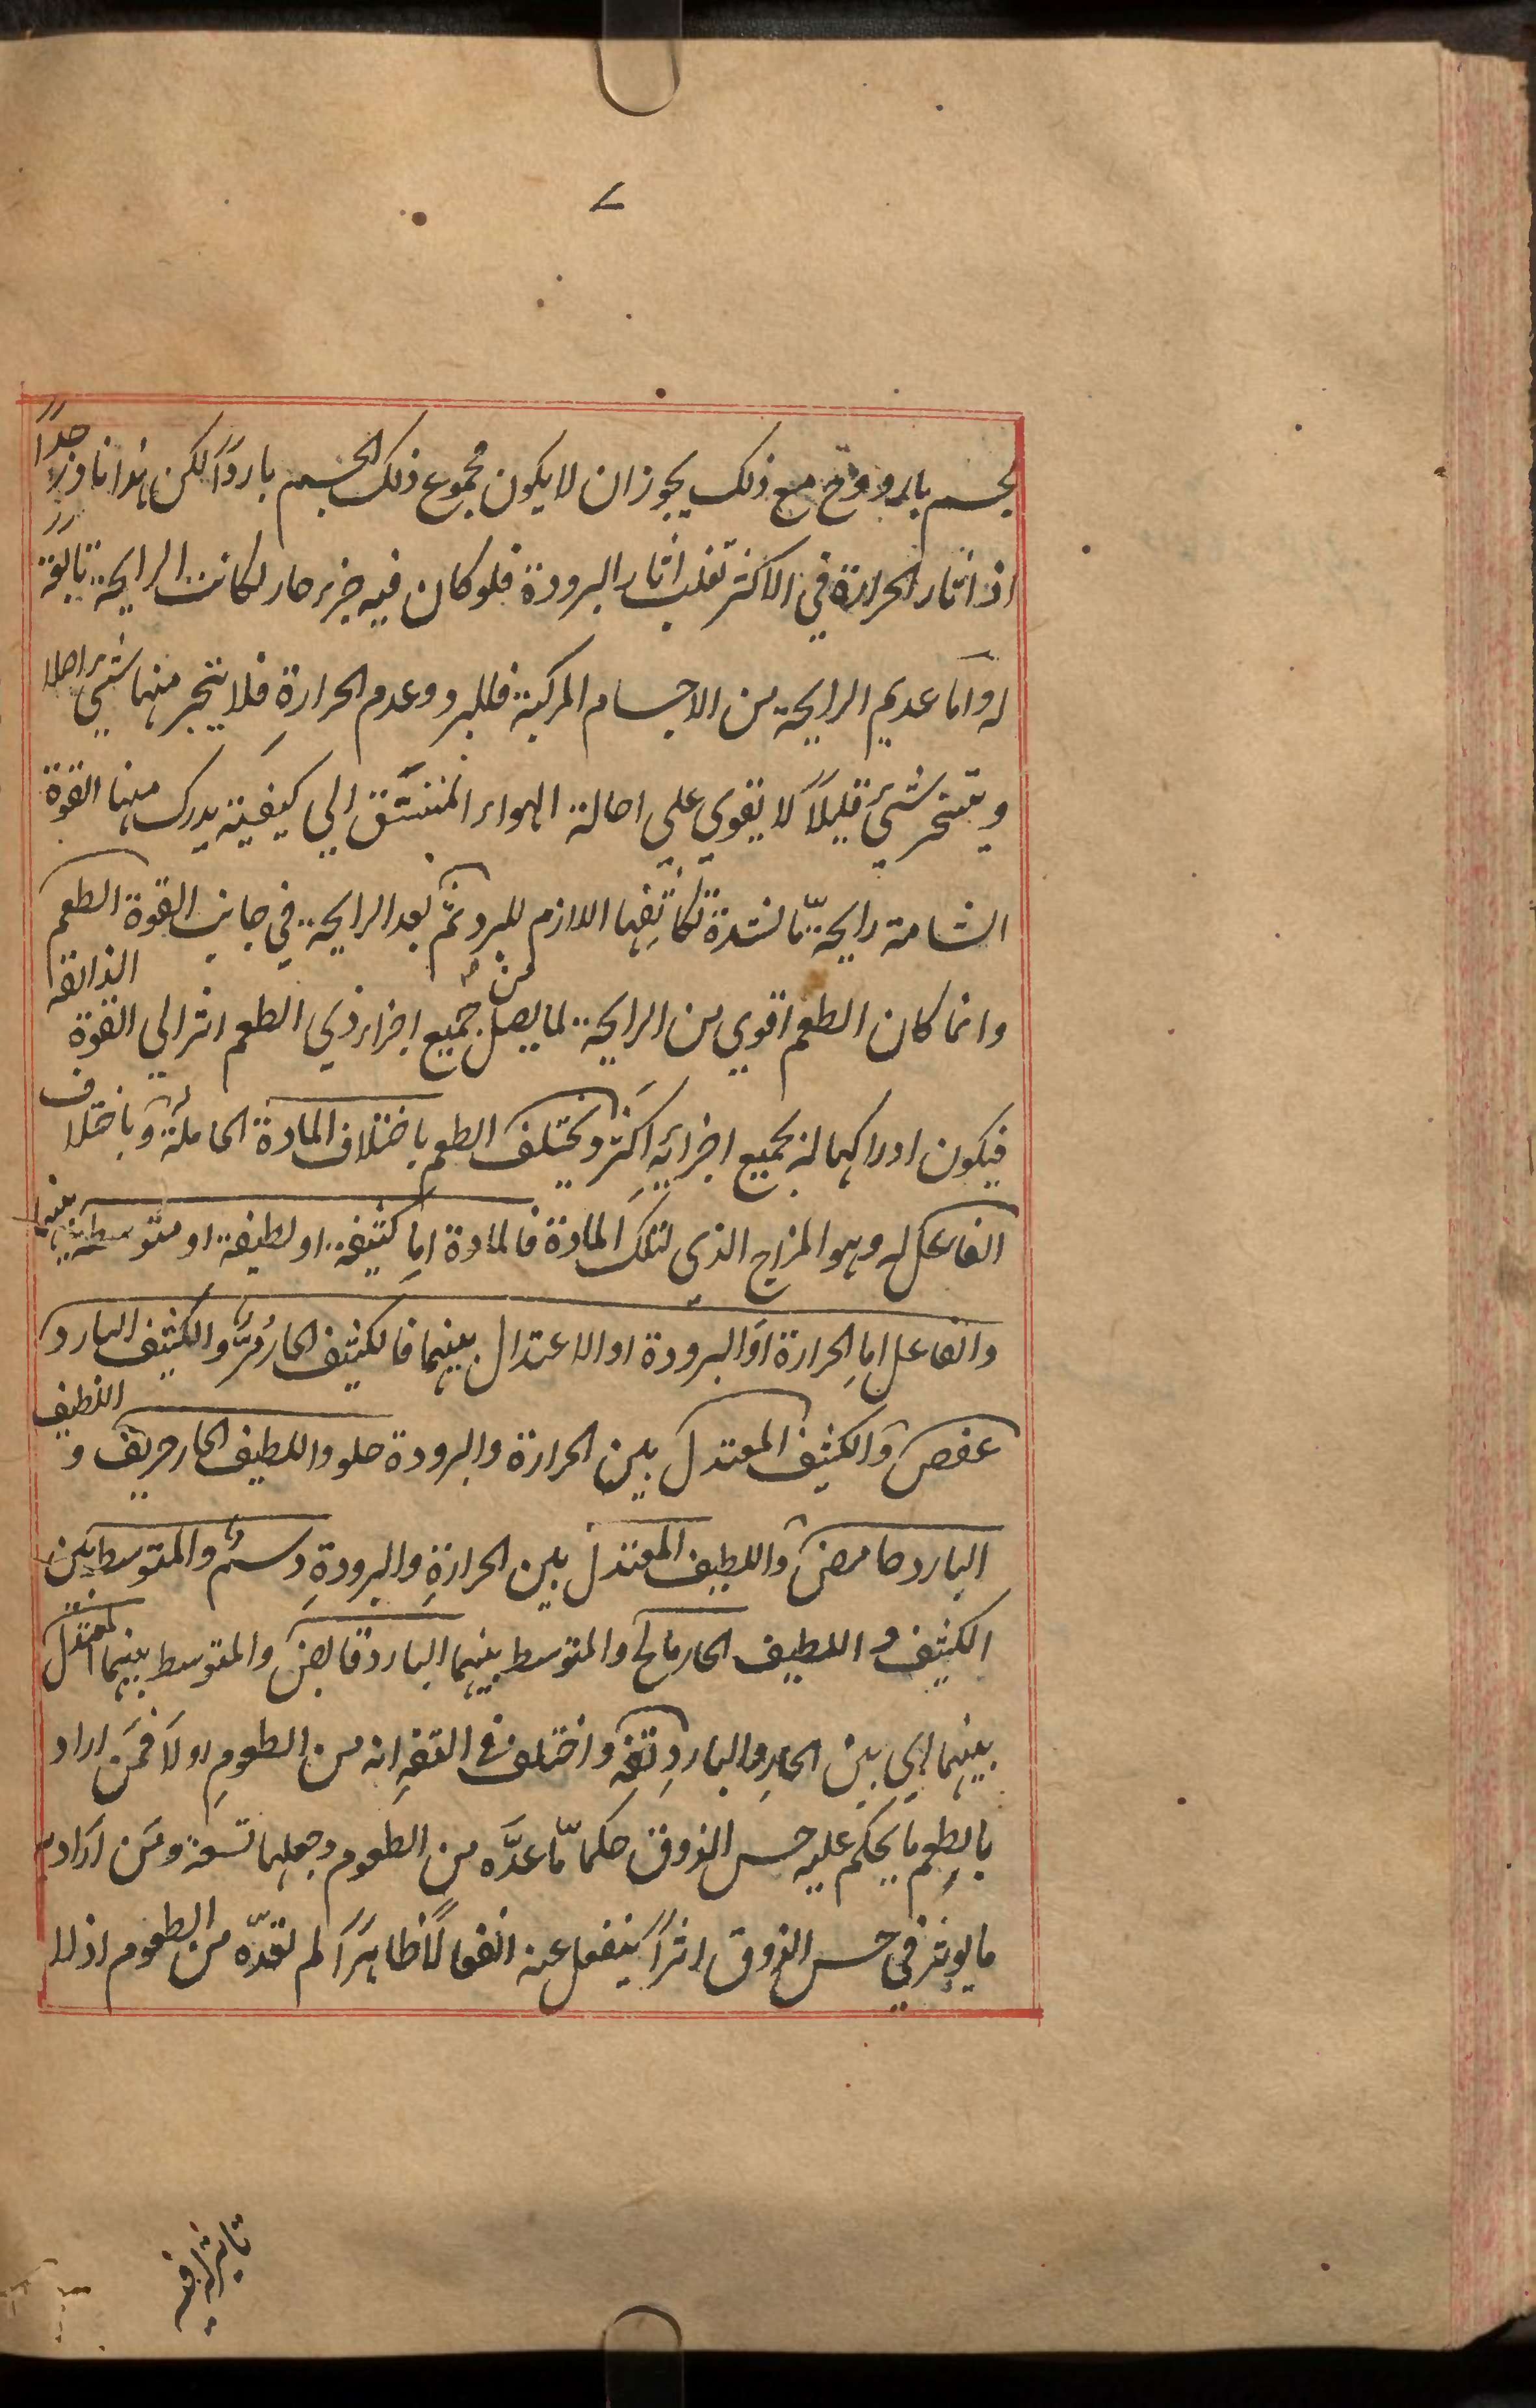 ٧
بجسم بارد ومع ذلك يجوز ان لا يكون مجموع ذلك الجسم باردًا لكن هذا نادر جدًا
اذ اثار الحرارة في الاكثر تغلب اثار البرودة فلو كان فيه جزء حار لكانت الرايحة تابعة
له واما عديم الرايحة من الاجسام المركبة فللبرد وعدم الحرارة فلا يتبخر منها شئ اصلا
ويتبخر شئ قليلاً لا يقوي علي احالة الهواء المتنشق الي كيفية يدرك منها القوة
الشامة رايحة ما لشدة تكاثفها اللازم للبرد ثم بعد الرايحة في جانب القوة الطعم
وانما كان الطعم اقوي من الرايحة لما يصل من جميع اجزاء ذي الطعم اثر الي القوة الذائقة
فيكون ادراكها له بجميع اجزائه اكثر ويختلف الطعم باختلاف المادة الحاملة وباختلاف
الفاعل له وهو المزاج الذي لتلك المادة فالمادة اما كثيفة او لطيفة او متوسطة بينهما
والفاعل اما الحرارة او البرودة او الاعتدال بينهما فالكثيف الحار مرٌّ والكثيف البارد
عفص والكثيف المعتدل بين الحرارة والبرودة حلو واللطيف الحار حريف و اللطيف
البارد حامض واللطيف المعتدل بين الحرارةِ والبرودةِ دسمٌ والمتوسط بين
الكثيف و اللطيف الحار مالح والمتوسط بينهما البارد قابض والمتوسط بينهما المعتدل
بينهما اي بين الحارِ والباردِ تفهٌ واختلف في التفهِ انه من الطعومِ اولا فمَن اراد
بالطعم ما يحكم عليه حس الذوق حكما ما عدَّه من الطعوم وجعلها تسعة ومَن اراد به
ما يوثر في حس الذوق اثراً ينفعل عنه انفعالًا ظاهرًا لم يعدّه من الطعوم اذ لا
تاثير له فيه